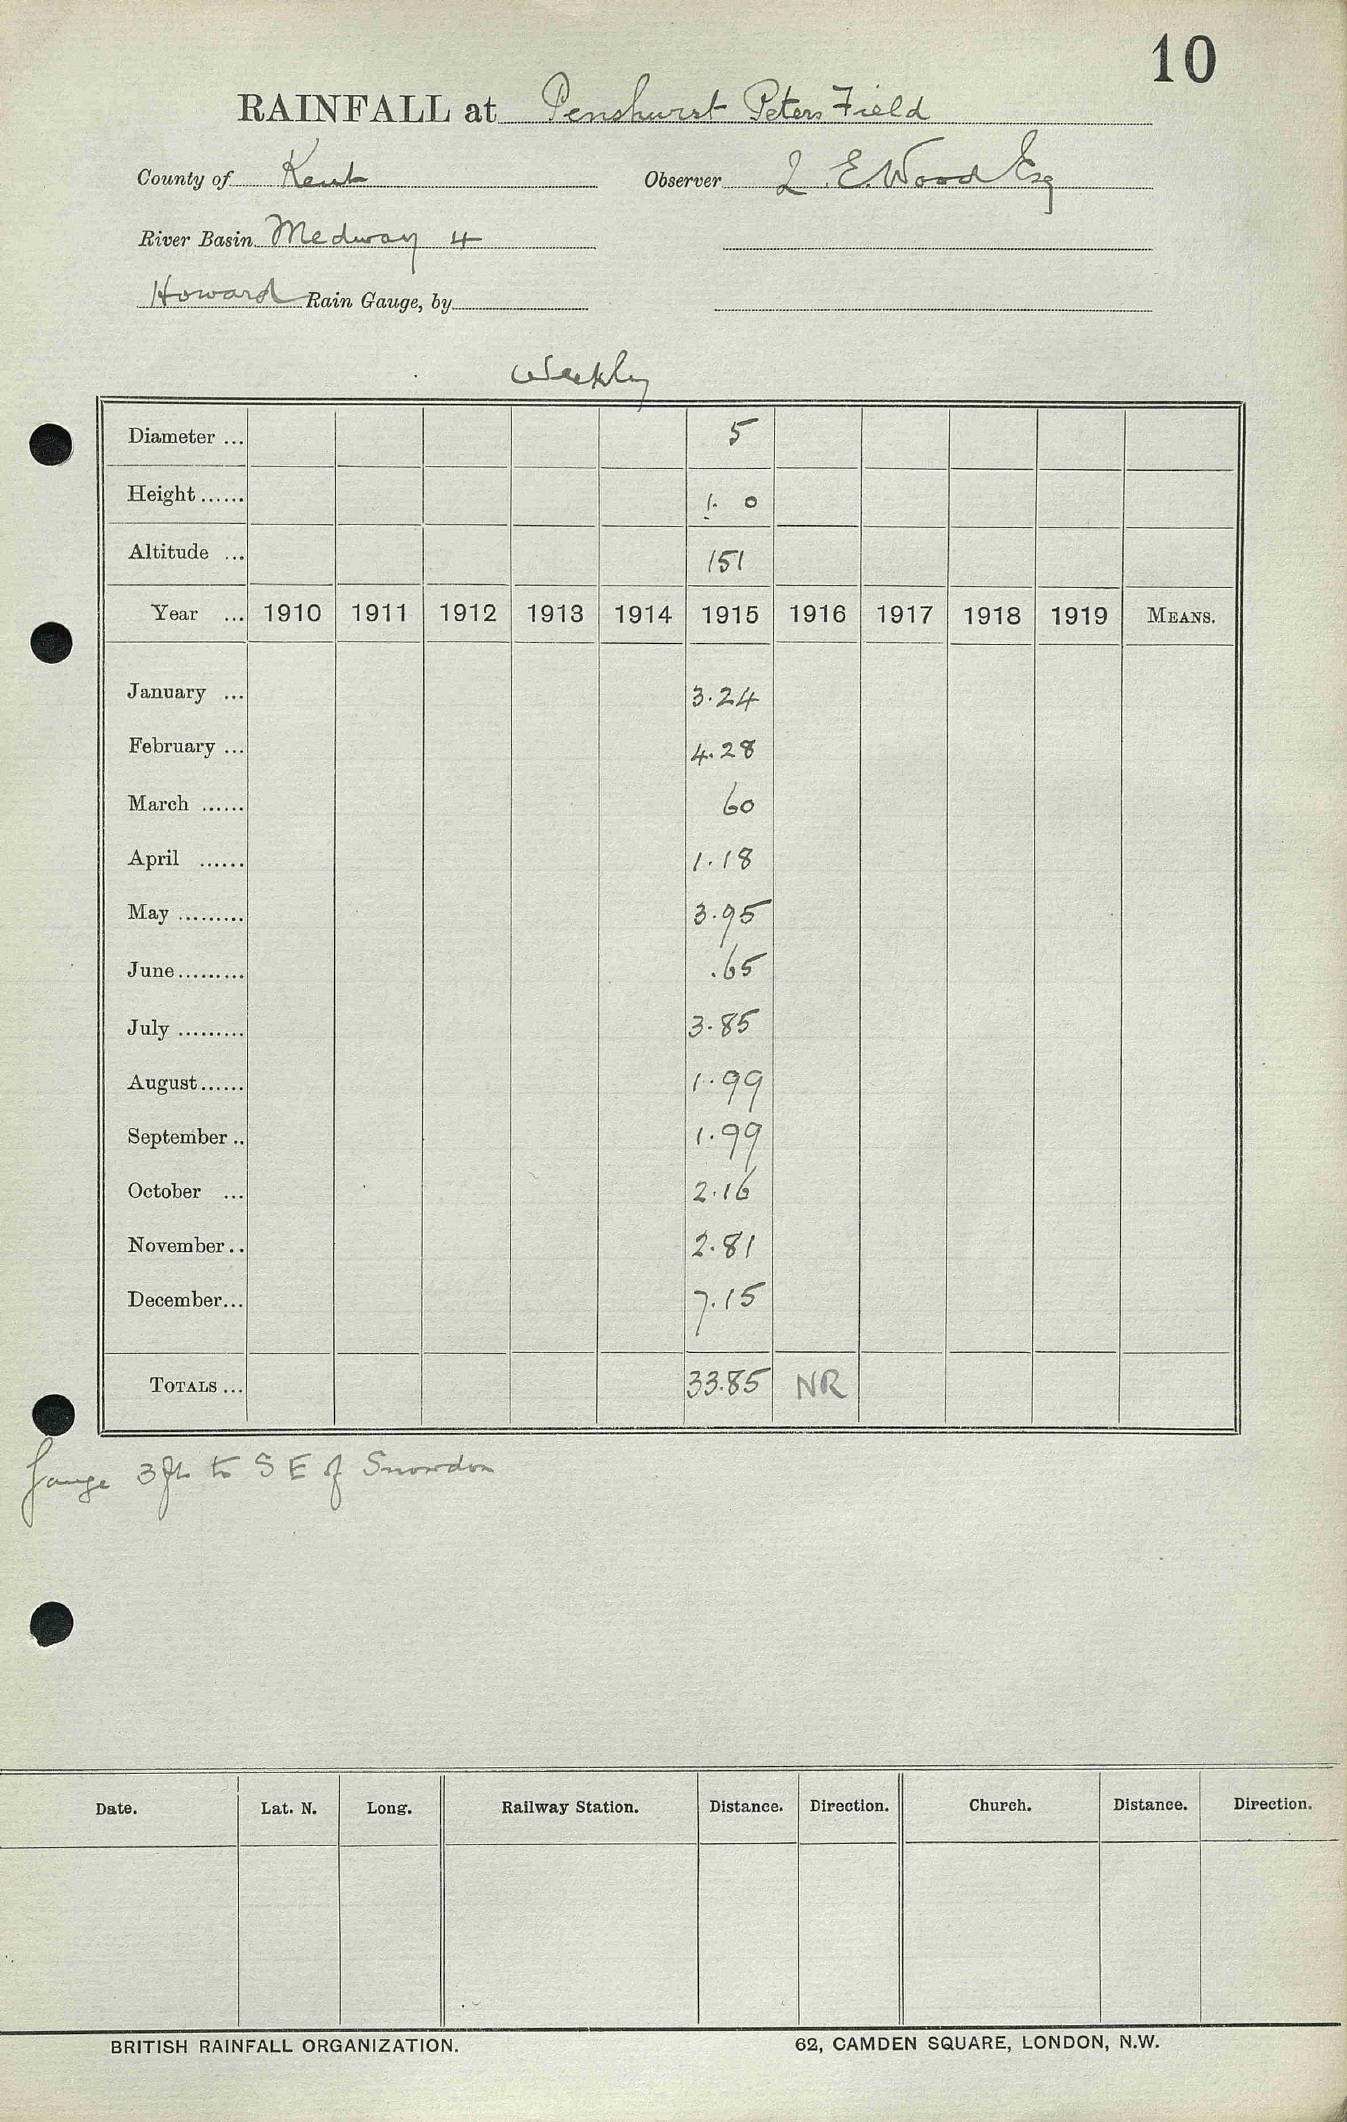 10
RAINFALL at Penshurst Peters Field
County of Kent Observer L. E. Wood Esq
River Basin Medway 4
Howard Rain Gauge, by
Weekly
Diameter ... 5
Height ...... 1. 0
Altitude ... 151
Year ... 1910 1911 1912 1913 1914 1915 1916 1917 1918 1919 MEANS.
January ... 3.24
February ... 4.28
March ...... 60
April ...... 1.18
May ......... 3.95
June ......... .65
July ......... 3.85
August ...... 1.99
September .. 1.99
October ... 2.16
November .. 2.81
December ... 7.15
TOTALS ... 33.85 NR
Gauge 3 ft to S E of Snowdon
Date. Lat. N. Long. Railway Station. Distance. Direction. Church. Distance. Direction.
BRITISH RAINFALL ORGANIZATION. 62, CAMDEN SQUARE, LONDON, N.W.